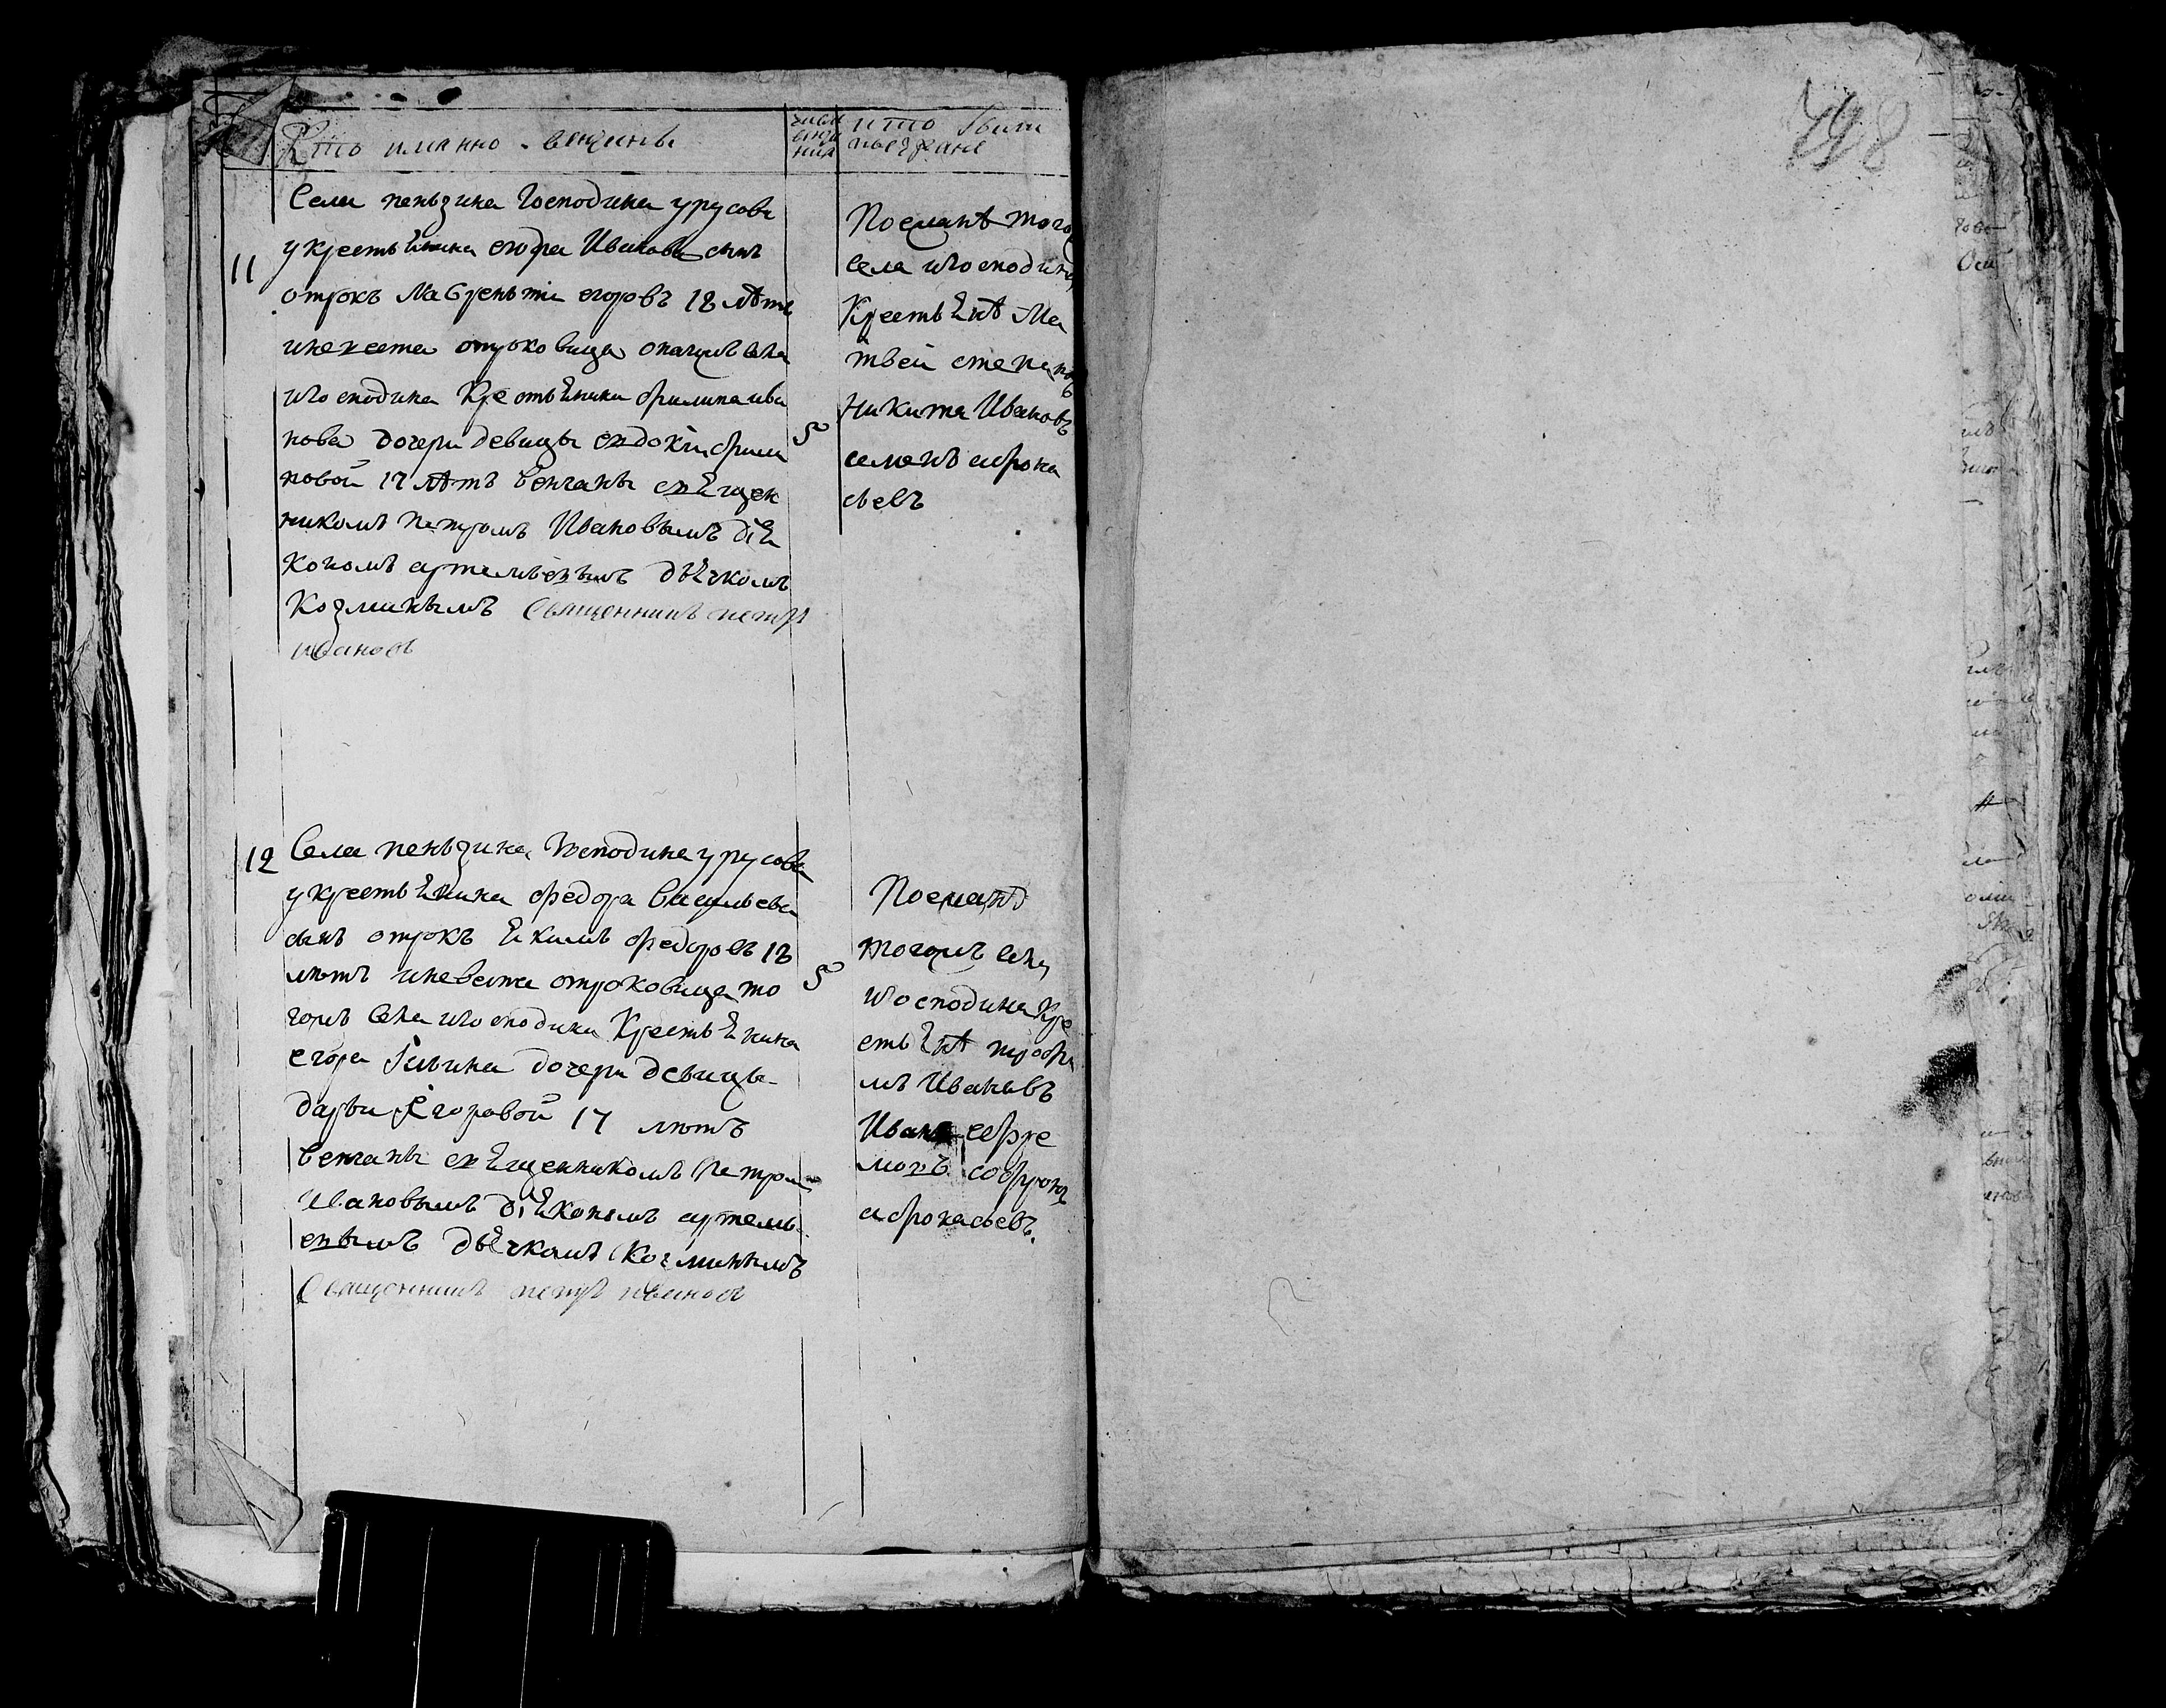 Кто имянно венчены
числа венча ния
кто были поезжане
11
Села пеньзина Господина урусова
у крестьянина егора Иванова сынъ
отрокъ Лаврентiи егоровъ 18 лѣтъ
и невеста отроковица онагожъ села
и Господина Крестьянина филипа ива
нова дочери девицы евдокiи фили
повой 17 лѣтъ венчаны священ
никомъ Петромъ Ивановымъ дiя
кономъ артемьевымъ дьячкомъ
Козминымъ Священникъ петръ
ивановъ
5
Поезжанѣ того
села и Господина
Крестьянѣ Ма
твеи степановъ
Никита Ивановъ
семенъ афона
сьевъ
12
Села пеньзина Господина урусова
у крестьянина федора Васильева
сынъ отрокъ Якимъ федоровъ 18
лѣтъ и невеста отроковица то
гожъ села и Господина Крестьянина
егора дочери девицы
дарьи Егоровой 17 лѣтъ
венчаны священникомъ Петромъ
Ивановымъ дiякономъ артемь
евымъ дьячкомъ Козминымъ
Священникъ петръ ивановъ
5
Поезжанѣ
тогожъ села
и Господина Кре
стьянѣ трофи
мъ Ивановъ
Иванъ ефре
мовъ софронъ
афонасьевъ.
498